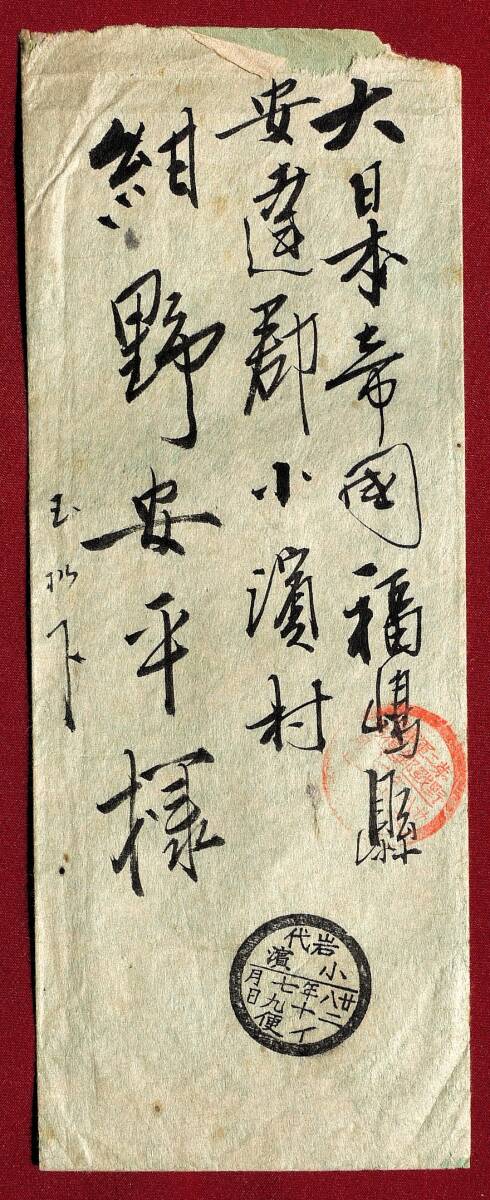 大日本帝國福嶋縣
安達郡小濱村
紺野安平様
玉机下
岩代
小濱
廿八年十
二
七九
月日
イ便